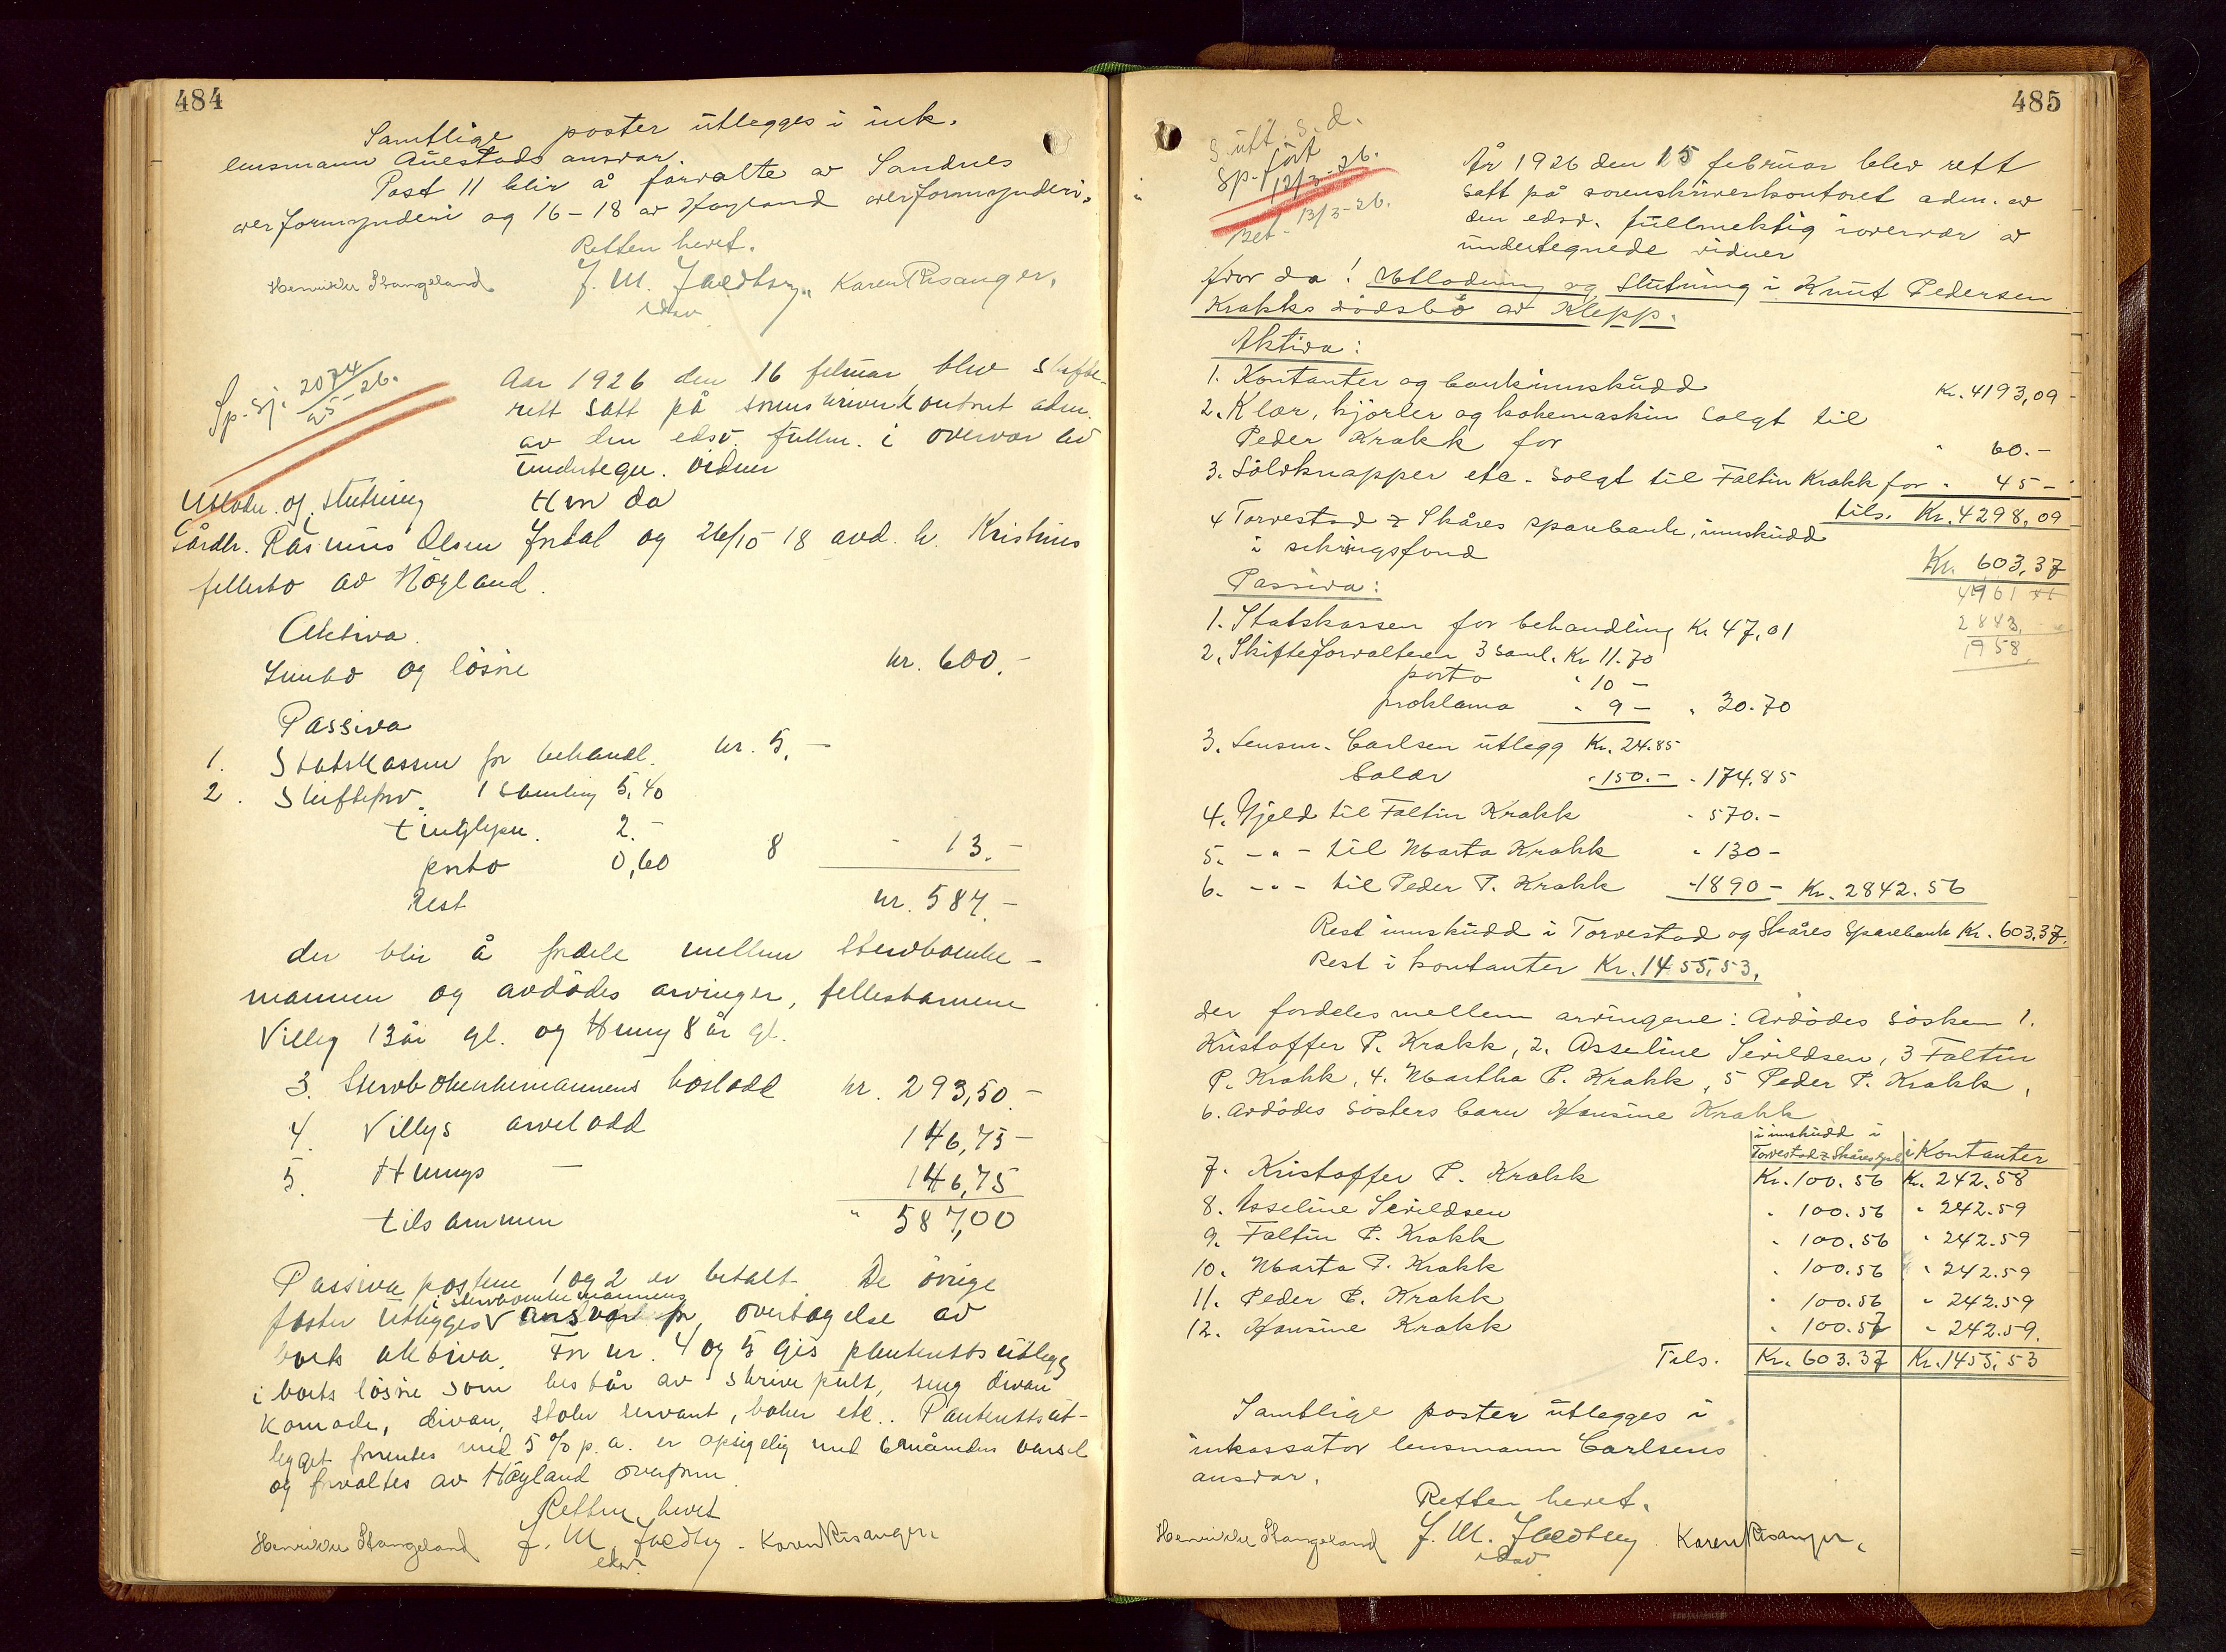 484
Samtlige poster utlegges i ink.
lensmann Auestads ansvar.
Post 11 blir å forvalte av Sandnes
overformynderi og 16-18 av Høyland overformynderi.
Retten hevet.
Henrikke Stangeland J. M. Jaedtby Karen Risanger.
edsv
Sp. sj. 2074/25-26.
Aar 1926 den 16 februar blev skifte-
rett satt på sorenskriverkontoret adm.
av den edsv. fullm. i overvær av
undertegn. vidner
Utlodn. og slutning Hvor da
Gårdbr. Rasmus Olsen Jndal og 26/10-18 avd. h. Kristines
fellesbo av Höyland.
Aktiva.
Innbo og lösöre kr. 600.-
Passiva
1. Statskassen for behandl. kr. 5.-
2. Skifteforv. 1 samling 5,40
tinglysn. 2.-
porto 0,60 8 - 13.-
Rest kr. 587.-
der blir å fordele mellem stervboenke-
mannen og avdödes arvinger, fellesbarnene
Villy 13 år gl. og Henny 8 år gl.
3. Stervboenkemannens boslodd kr. 293,50.-
4. Villys arvelodd 146,75-
5. Hennys — 146,75
tilsammen " 587,00
Passiva postene 1 og 2 er betalt. De övrige
i stervboenkemannens
poster utlegges ansvar for overtagelse av
boets aktiva. For nr. 4 og 5 gis panterettsutlegg
i boets lösöre som består av skrivepult, seng divan
Komode, divan, stoler servant, boker etc.. Panterettsut-
legget forrentes med 5 % p.a. er opsigelig med 6 måneders varsel
og forvaltes av Höyland overform.
Retten hevet
Henrikke Stangeland J. M. Jaedtby - Karen Risanger.
edsv.
485
S. utt. s. d.
Sp. fört
12/3-26.
Bet. 13/3-26.
År 1926 den 15 februar blev rett
satt på sorenskriverkontoret adm. av
den edsv. fullmektig i overvær av
undertegnede vidner
Hvor da! Utlodning og Slutning i Knut Pedersen
Krakks dödsbo av Klepp.
Aktiva:
1. Kontanter og bankinnskudd Kr. 4193,09
2. Klær, hjorler og kokemaskin solgt til
Peder Krakk for " 60.-
3. Sölvknapper etc. solgt til Faltin Krakk for " 45-
tils. Kr. 4298,09
4 Torvestad & Skåres sparebank, innskudd
i sikringsfond Kr. 603,37
Passiva:
4961
1. Statskassen for behandling Kr 47,01
2843,
2. Skifteforvalteren 3 saml. Kr 11.70
1958
porto " 10 -
proklama " 9 - " 30.70
3. Lensm. Carlsen utlegg Kr. 24.85
Salær " 150.- " 174.85
4. Gjeld til Faltin Krakk " 570.-
5. - " - til Marta Krakk " 130-
6. - " - til Peder P. Krakk - 1890 - Kr. 2842.56
Rest innskudd i Torvestad og Skåres Sparebank Kr. 603,37.
Rest i kontanter Kr. 1455,53.
der fordeles mellem arvingene: Avdödes sösken 1.
Kristoffer P. Krakk, 2. Asseline Sevildsen, 3 Faltin
P. Krakk, 4. Martha P. Krakk, 5 Peder P. Krakk,
6. avdödes sösters barn Hansine Krakk
i innskudd i
Torvestad & Skåres spb. i Kontanter
7. Kristoffer P. Krakk Kr. 100.56 Kr. 242.58
8. Asseline Sevildsen " 100.56 " 242.59
9. Faltin P. Krakk " 100.56 " 242.59
10. Marta P. Krakk " 100.56 " 242.59
11. Peder P. Krakk " 100.56 " 242.59
12. Hansine Krakk " 100.57 " 242.59.
Tils. Kr. 603.37 Kr. 1455,53
Samtlige poster utlegges i
inkassator lensmann Carlsens
ansvar.
Retten hevet.
Henrikke Stangeland J. M. Jaedtby Karen Risanger.
edsv